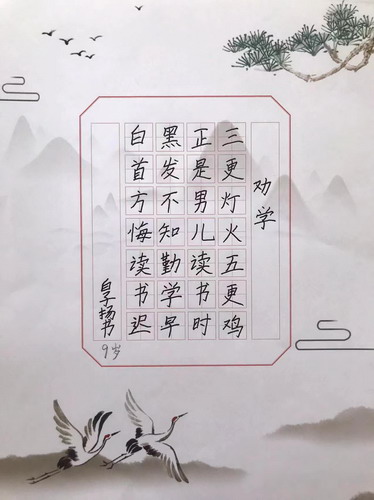 劝学
三更灯火五更鸡
正是男儿读书时
黑发不知勤学早
白首方悔读书迟
9岁